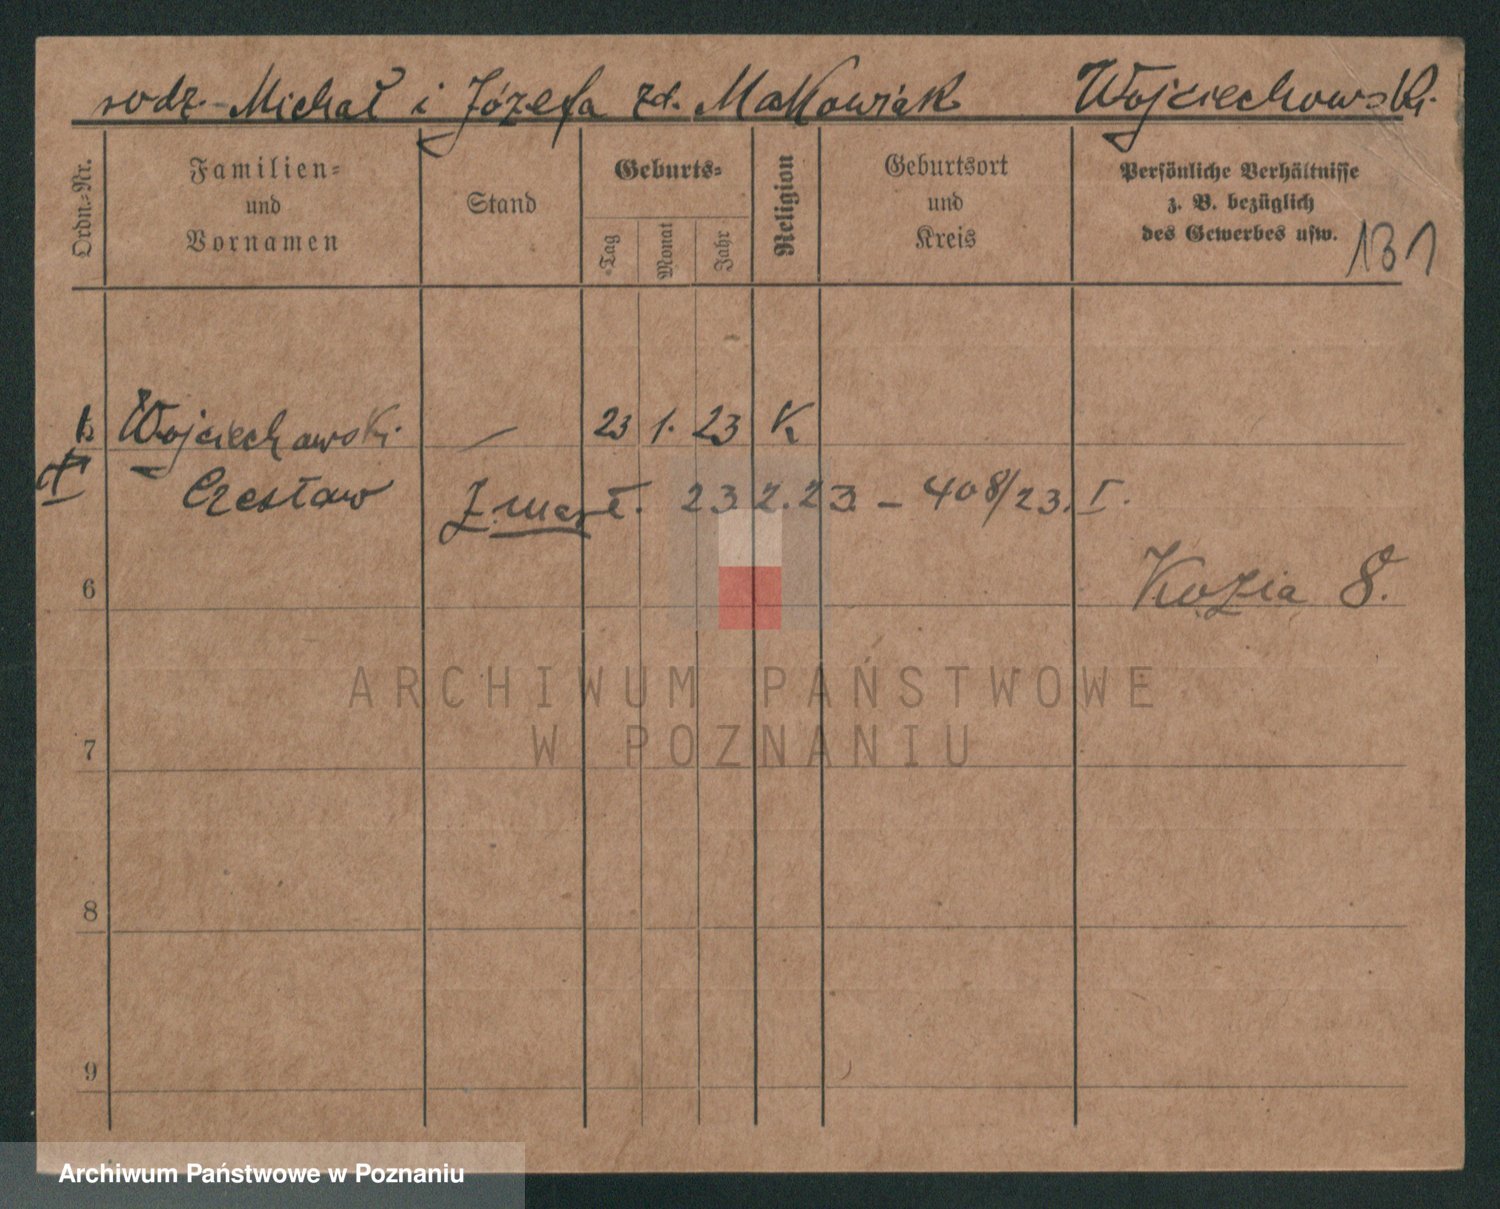 rodz. Michał i Józefa zd. Makowiak Wojciechowski.
Ordn.-Nr.
Familien-
und
Vornamen
Stand
Geburts-
Tag
Monat
Jahr
Religion
Geburtsort
und
Kreis
Persönliche Verhältnisse
z. B. bezüglich
des Gewerbes usw.
131
Wojciechowski. — 23 1. 23 K
Czesław Zmarł. 23 2. 23. – 408/23. I.
6 Kozia 8.
7
8
9
ARCHIWUM PAŃSTWOWE
W POZNANIU
Archiwum Państwowe w Poznaniu